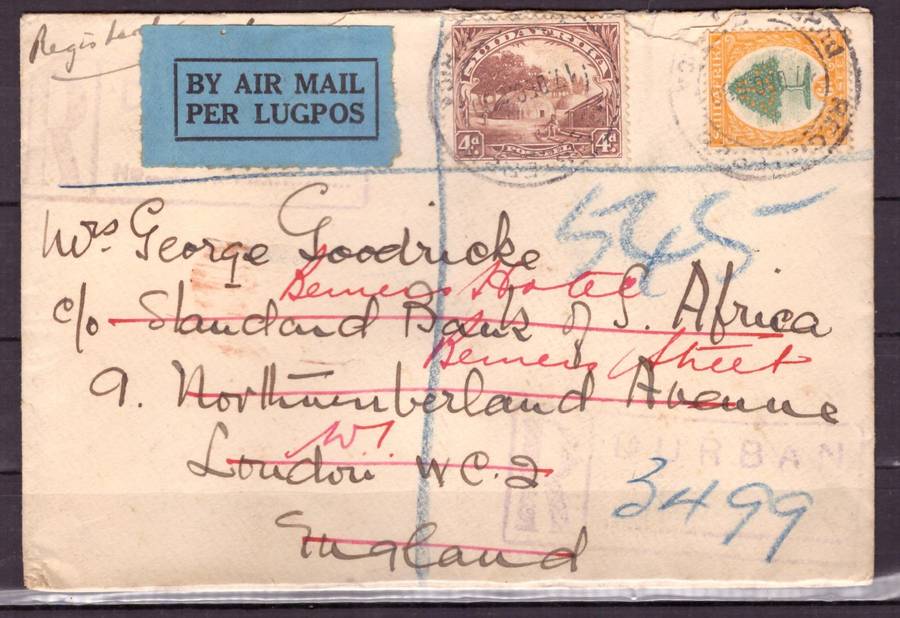 Registered
BY AIR MAIL
PER LUGPOS
SUIDAFRIKA
4d 4d
POSSEEL
545
Mrs. George Goodricke
Berners Hotel
c/o Standard Bank of S. Africa
Berners Street
9. Northumberland Avenue
W1
London W.C.2
DURBAN
3499
England